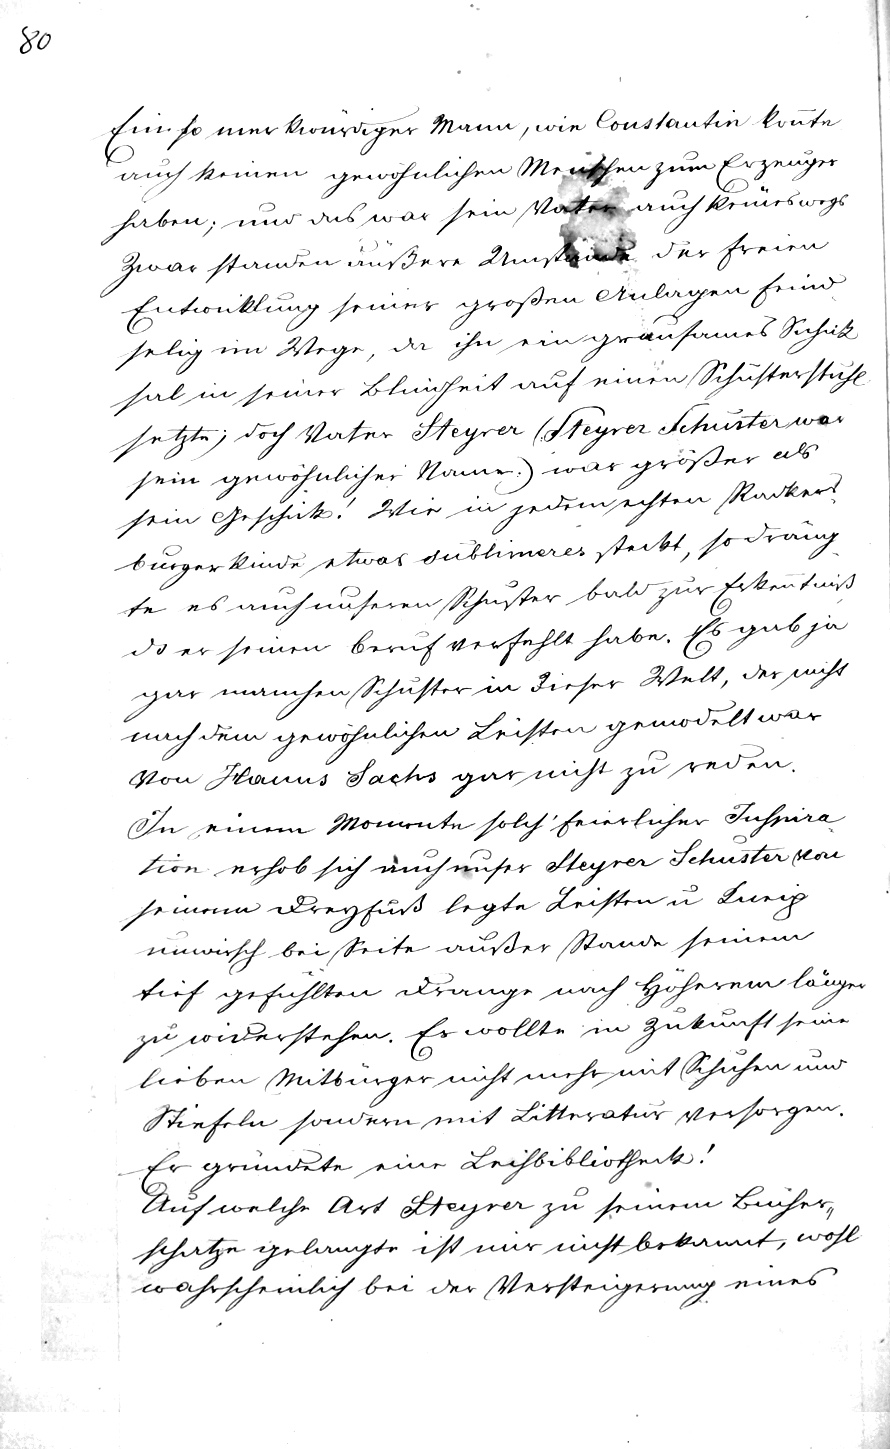 80
Ein so merkwürdiger Mann, wie Constantin kon̄te
auch keinen gewöhnlichen Menschen zum Erzeuger
haben; und das war sein Vater auch keineswegs
Zwar standen äußere Umstände der freien
Entwicklung seiner großen Anlagen feind
selig im Wege, da ihn ein grausames Schick
sal in seiner Blindheit auf einen Schusterstuhl
setzte; doch Vater Steyrer (Steyrer Schuster war
sein gewöhnlicher Name.) war größer als
sein Geschick! Wie in jedem echten Radkers-
burgerkinde etwas sublimeres steckt, so dräng-
te es auch unseren Schuster bald zur Erken̄tniß
ds er seinen Beruf verfehlt habe. Es gab ja
gar manchen Schuster in dieser Welt, der nicht
nach dem gewöhnlichen Leisten gemodelt war
von Hanns Sachs gar nicht zu reden.
In einem Momente solch' feierlicher Inspira-
tion erhob sich auch unser Steyrer Schuster von
seinem Dreyfuß legte Leisten u Kneip
unwirsch bei Seite außer Stande seinem
tief gefühlten Drange nach Höherem länger
zu widerstehen. Er wollte in Zukunft seine
lieben Mitbürger nicht mehr mit Schuhen und
Stiefeln sondern mit Litteratur versorgen.
Er gründete eine Leihbibliotheck!
Auf welche Art Steyrer zu seinem Bücher„
schatze gelangte ist mir nicht bekannt, wohl
wahrscheinlich bei der Versteigerung eines